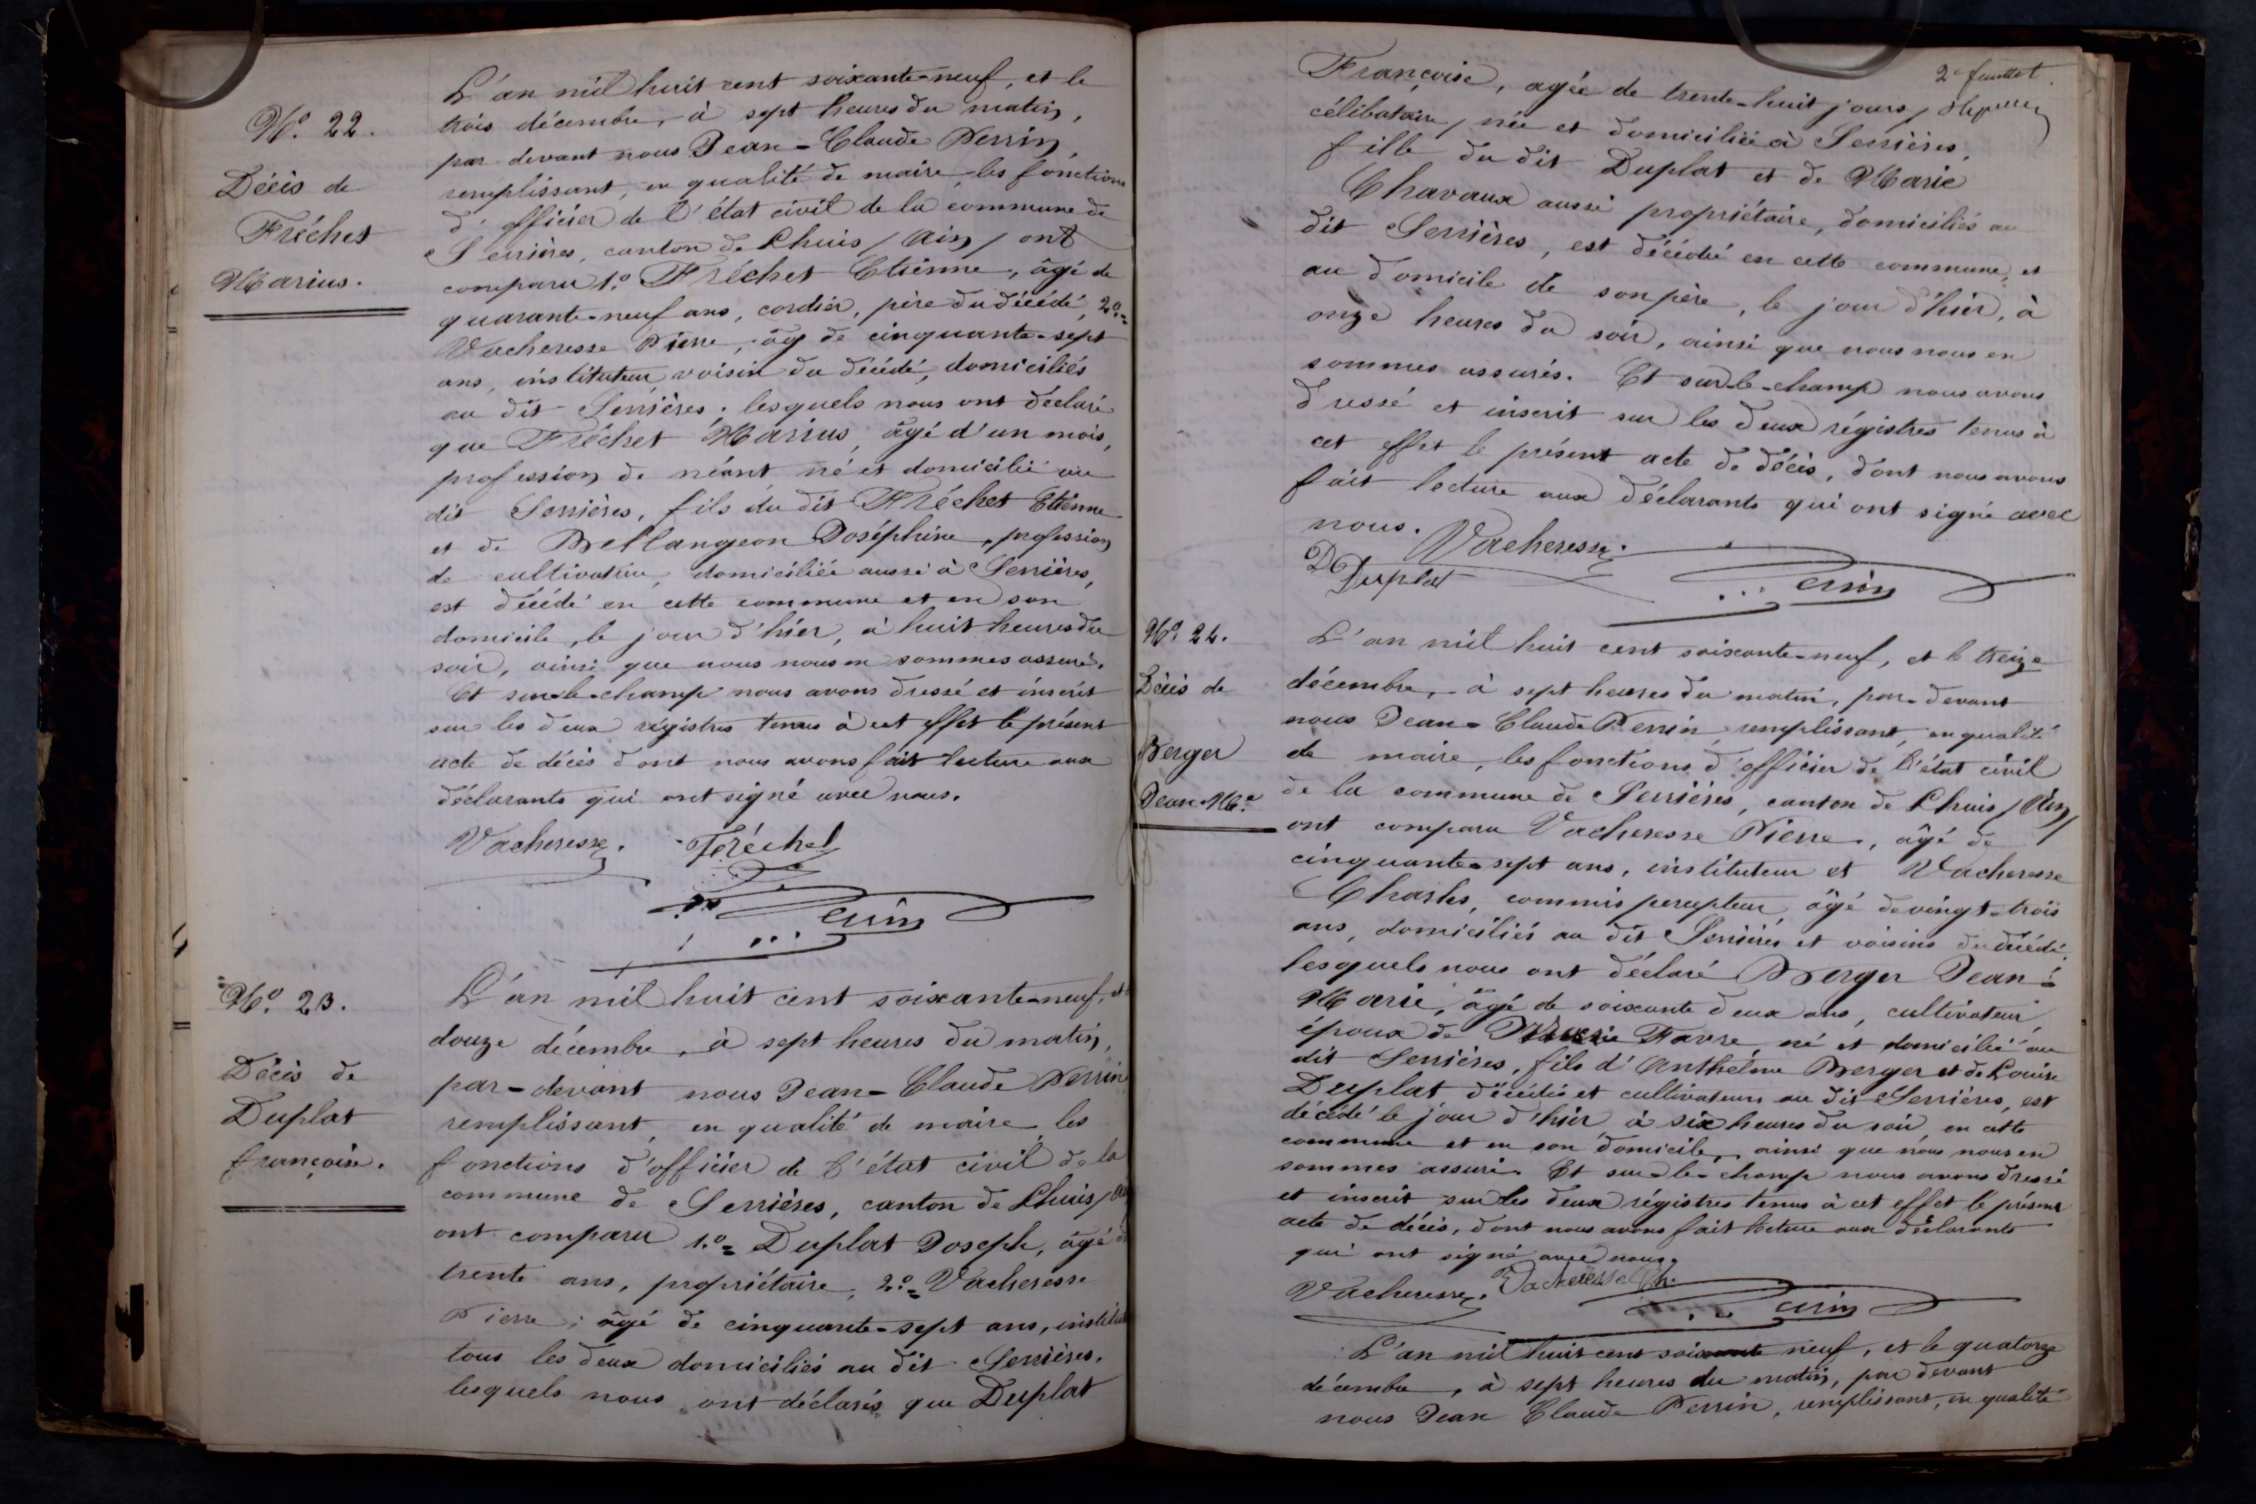 N.º 22.
Décès de
Fréchet
Marius.
L'an mil huit cent soixante-neuf, et le
trois décembre, à sept heures du matin,
par devant nous Jean-Claude Perrin,
remplissant, en qualité de maire, les fonctions
d'officier de l'état civil de la commune de
Serrières, canton de Lhuis / Ain / ont
comparu 1.º Fréchet Etienne, âgé de
quarante-neuf ans, cordier, père du décédé, 2.º=
Vacheresse Pierre, âgé de cinquante-sept
ans, instituteur voisin du décédé, domiciliés
au dit Serrières. lesquels nous ont déclaré
que Fréchet Marius, âgé d'un mois,
profession de néant né et domicilié au
dit Serrières, fils du dit Fréchet Etienne
et de Bellangeon Joséphine, profession
de cultivatrice, domiciliée aussi à Serrières,
est décédé en cette commune et en son
domicile, le jour d'hier, à huit heures du
soir, ainsi que nous nous en sommes assuré.
Et sur-le-champ nous avons dressé et inscrit
sur les deux régistres tenus à cet effet le présent
acte de décès dont nous avons fait lecture aux
déclarants qui ont signé avec nous.
Vacheresse. Fréchet
Perrin
N.º 23.
Décès de
Duplat
françoise.
L'an mil huit cent soixante-neuf, et
douze décembre, à sept heures du matin,
par-devant nous Jean-Claude Perrin
remplissant, en qualité de maire, les
fonctions d'officier de l'état civil de la
commune de Serrières, canton de Lhuis /
ont comparu 1.º= Duplat Joseph, âgé
trente ans, propriétaire, 2.º= Vacheresse
Pierre, âgé de cinquante-sept ans,
tous les deux domiciliés au dit Serrières.
lesquels nous ont déclarés que Duplat
2e feuillet.
Françoise, agée de trente-huit jours,
célibataire, née et domiciliée à Serrières,
fille du dit Duplat et de Marie
Chavaux aussi propriétaire, domiciliés au
dit Serrières, est décédée en cette commune, et
au domicile de son père, le jour d'hier, à
onze heures du soir, ainsi que nous nous en
sommes assurés. Et sur-le-champ nous avons
dressé et inscrit sur les deux régistres tenus à
cet effet le présent acte de décès, dont nous avons
fait lecture aux déclarants qui ont signé avec
nous. Vacheresse.
Duplat Perrin
N.º 24.
Décès de
Berger
Jean-M.e
L'an mil huit cent soixante-neuf, et le treize
décembre, à sept heures du matin, par-devant
nous Jean-Claude Perrin, remplissant, en qualité
de maire, les fonctions d'officier de l'état civil
de la commune de Serrières, canton de Lhuis / Ain /
ont comparu Vacheresse Pierre, âgé de
cinquante-sept ans, instituteur et Vacheresse
Charles, commis percepteur, âgé de vingt-trois
ans, domiciliés au dit Serrières et voisins du décédé,
lesquels nous ont déclaré Berger Jean-
Marie, âgé de soixante deux ans, cultivateur,
époux de Favre, né et domicilié au
dit Serrières, fils d'Anthelme Berger et de Louise
Duplat décédés et cultivateurs au dit Serrières, est
décédé le jour d'hier à six heures du soir en cette
commune et en son domicile, ainsi que nous nous en
sommes assuré. Et sur-le-champ nous avons dressé
et inscrit sur les deux régistres tenus à cet effet le présent
acte de décès, dont nous avons fait lecture aux déclarants
qui ont signé avec nous.
Vacheresse. Vacheresse Ch.
Perrin
L'an mil huit cent soixante neuf, et le quatorze
décembre, à sept heures du matin, par devant
nous Jean Claude Perrin, remplissant, en qualité